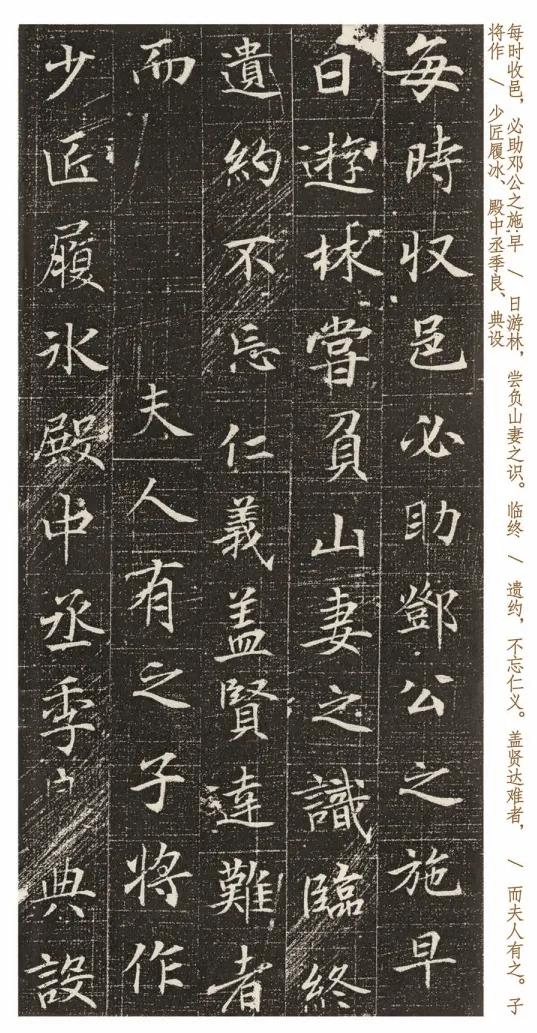 每時収邑必助鄧公之施早
日遊林嘗負山妻之識臨終
遺約不忘仁義盖賢達難者
而夫人有之子将作
少匠履氷殿中丞季良典設
每时收邑，必助邓公之施。早 / 日游林，尝负山妻之识。临终 / 遗约，不忘仁义。盖贤达难者， / 而夫人有之。子
将作 / 少匠履冰、殿中丞季良、典设